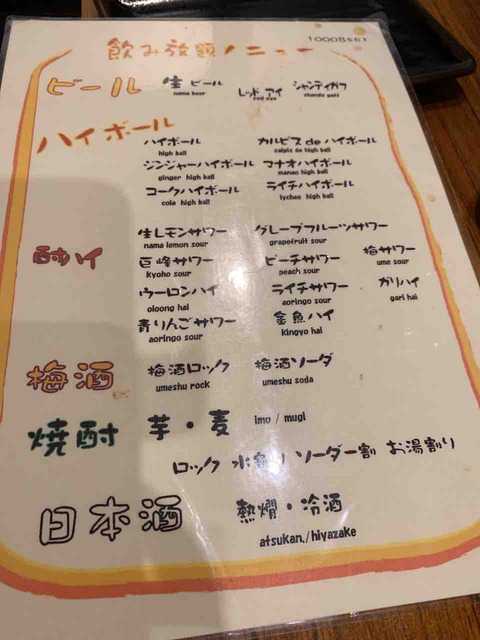 1000Bset
飲み放題メニュー
ビール 生ビール レッドアイ シャンディガフ
nama beer red eye shandy gaff
ハイボール
ハイボール カルピスdeハイボール
high ball calpis de high ball
ジンジャーハイボール マナオハイボール
ginger high ball manao high ball
コークハイボール ライチハイボール
cola high ball lychee high ball
生レモンサワー グレープフルーツサワー
nama lemon sour grapefruit sour
酎ハイ 巨峰サワー ピーチサワー 梅サワー
kyoho sour peach sour ume sour
ウーロンハイ ライチサワー ガリハイ
oloong hai aoringo sour gari hai
青りんごサワー 金魚ハイ
aoringo sour Kingyo hai
梅酒 梅酒ロック 梅酒ソーダ
umeshu rock umeshu soda
焼酎 芋・麦 imo / mugi
ロック 水割り ソーダー割 お湯割り
日本酒 熱燗・冷酒
atsukan./hiyazake